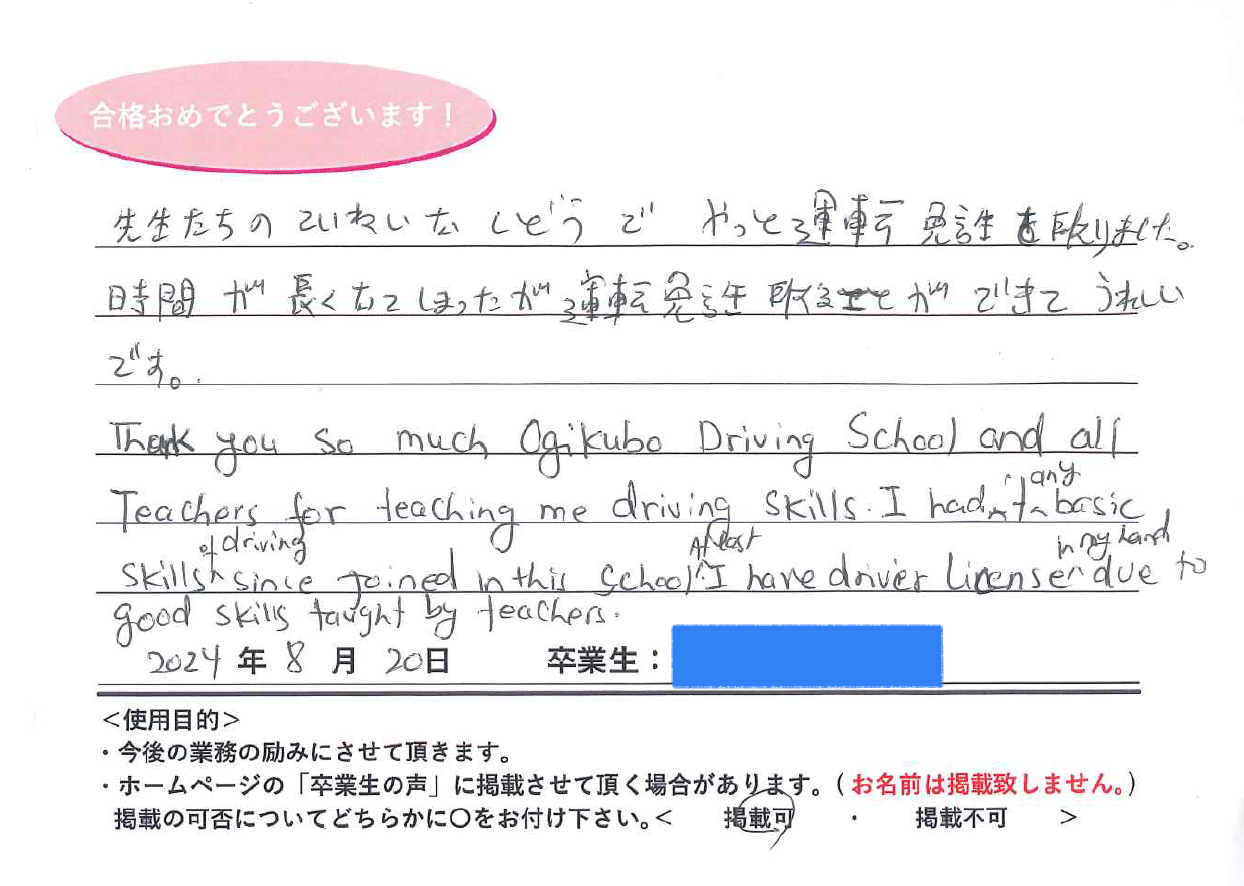 合格おめでとうございます！
先生たちの ていねいな しどう で やっと運転免許証を取りました。
時間が長くなてしまったが運転免許証取ることができてうれしい
です。
Thank you so much Ogikubo Driving School and all
Teachers for teaching me driving skills. I had n't any basic
skills of driving since joined in this school. At last I have driver license in my hand due to
good skills taught by teachers.
2024年8月20日 卒業生：
＜使用目的＞
・今後の業務の励みにさせて頂きます。
・ホームページの「卒業生の声」に掲載させて頂く場合があります。（お名前は掲載致しません。）
掲載の可否についてどちらかに〇をお付け下さい。＜ 掲載可 ・ 掲載不可 ＞